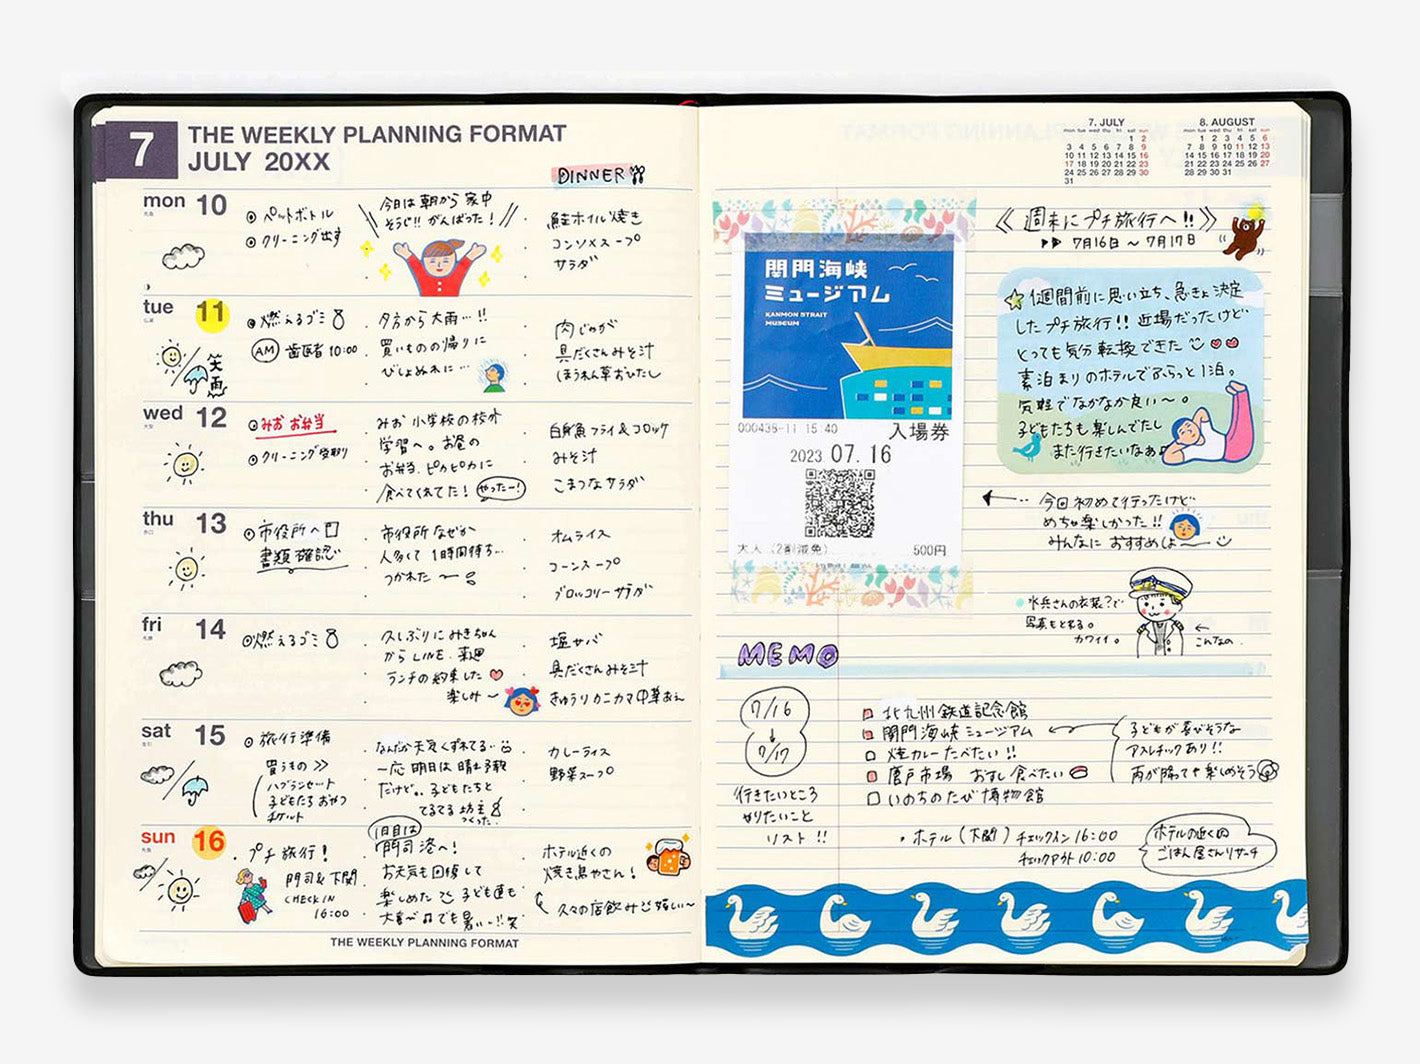 7
THE WEEKLY PLANNING FORMAT
JULY 20XX
DINNER
mon 10
ペットボトル
クリーニング出す
今日は朝から家中
そうじ!! がんばった!
鮭ホイル焼き
コンソメスープ
サラダ
tue 11
笑
雨
燃えるゴミ
AM 歯医者 10:00
夕方から大雨…!!
買いものの帰りに
びしょぬれに…
肉じゃが
具だくさんみそ汁
ほうれん草おひたし
wed 12
みお お弁当
クリーニング受取り
みお 小学校の校外
学習へ。お昼の
お弁当、ピカピカに
食べてくれてた! やったー!
白身魚フライ&コロッケ
みそ汁
こまつなサラダ
thu 13
市役所へ
書類確認
市役所なぜか
人多くて 1時間待ち…
つかれた〜
オムライス
コーンスープ
ブロッコリーサラダ
fri 14
燃えるゴミ
久しぶりにみきちゃん
からLINE.来週
ランチの約束した
楽しみ〜
塩サバ
具だくさんみそ汁
きゅうりカニカマ中華あえ
sat 15
旅行準備
買うもの >>
ハブラシセット
子どもたちおやつ
チケット
なんだか天気くずれてる…
一応明日は晴れ予報
だけど。。子どもたちと
てるてる坊主
つくった.
カレーライス
野菜スープ
sun 16
プチ旅行!
門司&下関
CHECK IN
16:00
1日目は
門司港へ!
お天気も回復して
楽しめた 子ども達も
大喜び でも暑い…!! 笑
ホテル近くの
焼き鳥やさん!
久々の店飲み 嬉しい〜
THE WEEKLY PLANNING FORMAT
7. JULY
mon tue wed thu fri sat sun
1 2
3 4 5 6 7 8 9
10 11 12 13 14 15 16
17 18 19 20 21 22 23
24 25 26 27 28 29 30
31
8. AUGUST
mon tue wed thu fri sat sun
1 2 3 4 5 6
7 8 9 10 11 12 13
14 15 16 17 18 19 20
21 22 23 24 25 26 27
28 29 30 31
関門海峡
ミュージアム
KANMON STRAIT
MUSEUM
000438-11 15:40
入場券
2023 07.16
大人(2割減免) 500円
《 週末にプチ旅行へ!! 》
7月16日〜7月17日
1週間前に思い立ち、急きょ決定
したプチ旅行!! 近場だったけど
とっても気分転換できた
素泊まりのホテルでふらっと1泊。
気軽でなかなか良い〜。
子どもたちも楽しんでたし
また行きたいなぁ
今回初めて行ったけど
めちゃ楽しかった!!
みんなにおすすめしよ〜
水兵さんの衣装?で
写真もとれる。
カワイイ。
こんなの.
MEMO
7/16
↓
7/17
行きたいところ
やりたいこと
リスト!!
北九州鉄道記念館
関門海峡ミュージアム
焼カレーたべたい!!
唐戸市場 おすし食べたい
いのちのたび博物館
子どもが喜びそうな
アスレチックあり!!
雨が降っても楽しめそう
・ホテル(下関) チェックイン 16:00
チェックアウト 10:00
ホテルの近くの
ごはん屋さんリサーチ